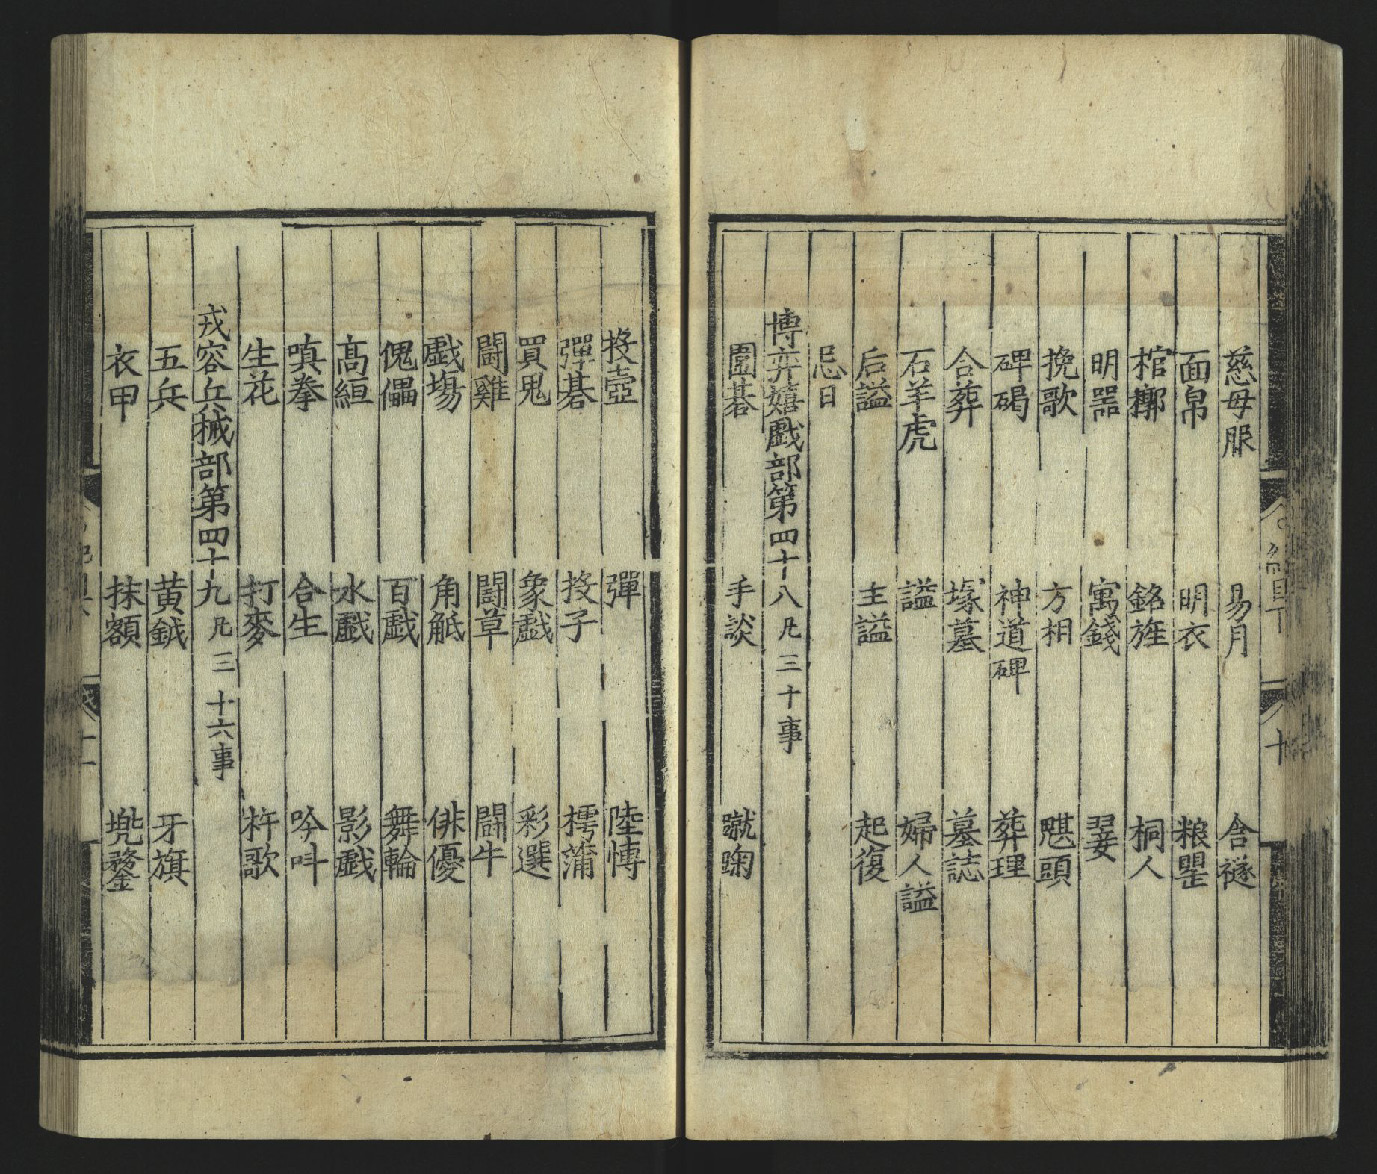 慈母服 易月 含襚
面帛 明衣 粮罌
棺槨 銘旌 桐人
明器 寓錢 翣
挽歌 方相 魌頭
碑碣 神道碑 葬理
合葬 塚墓 墓誌
石羊虎 謚 婦人謚
后謚 主謚 起復
忌日
博弈嬉戲部第四十八 凡三十事
圍碁 手談 蹴踘
投壺 彈 陸博
彈碁 投子 樗蒲
買鬼 象戲 彩選
鬪雞 鬪草 鬪牛
戲場 角觝 俳優
傀儡 百戲 舞輪
高絙 水戲 影戲
嗔拳 合生 吟叫
生花 打麥 杵歌
戎容兵械部第四十九 凡三十六事
五兵 黃鉞 牙旗
衣甲 抹額 兠鍪